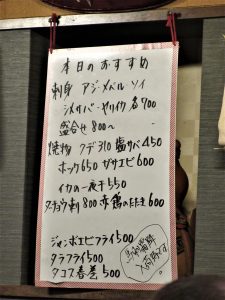 本日のおすすめ
刺身 アジ メバル ソイ
シメサバー ヤリイカ 各700
盛合せ 800〜
焼物 フデ310 塩サバ450
ホッケ650 ガサエビ600
イカの一夜干550
ダチョウ刺800 赤鶏のたたき600
ジャンボエビフライ500
タラフライ500
タコス春巻500
馬刺
入荷です